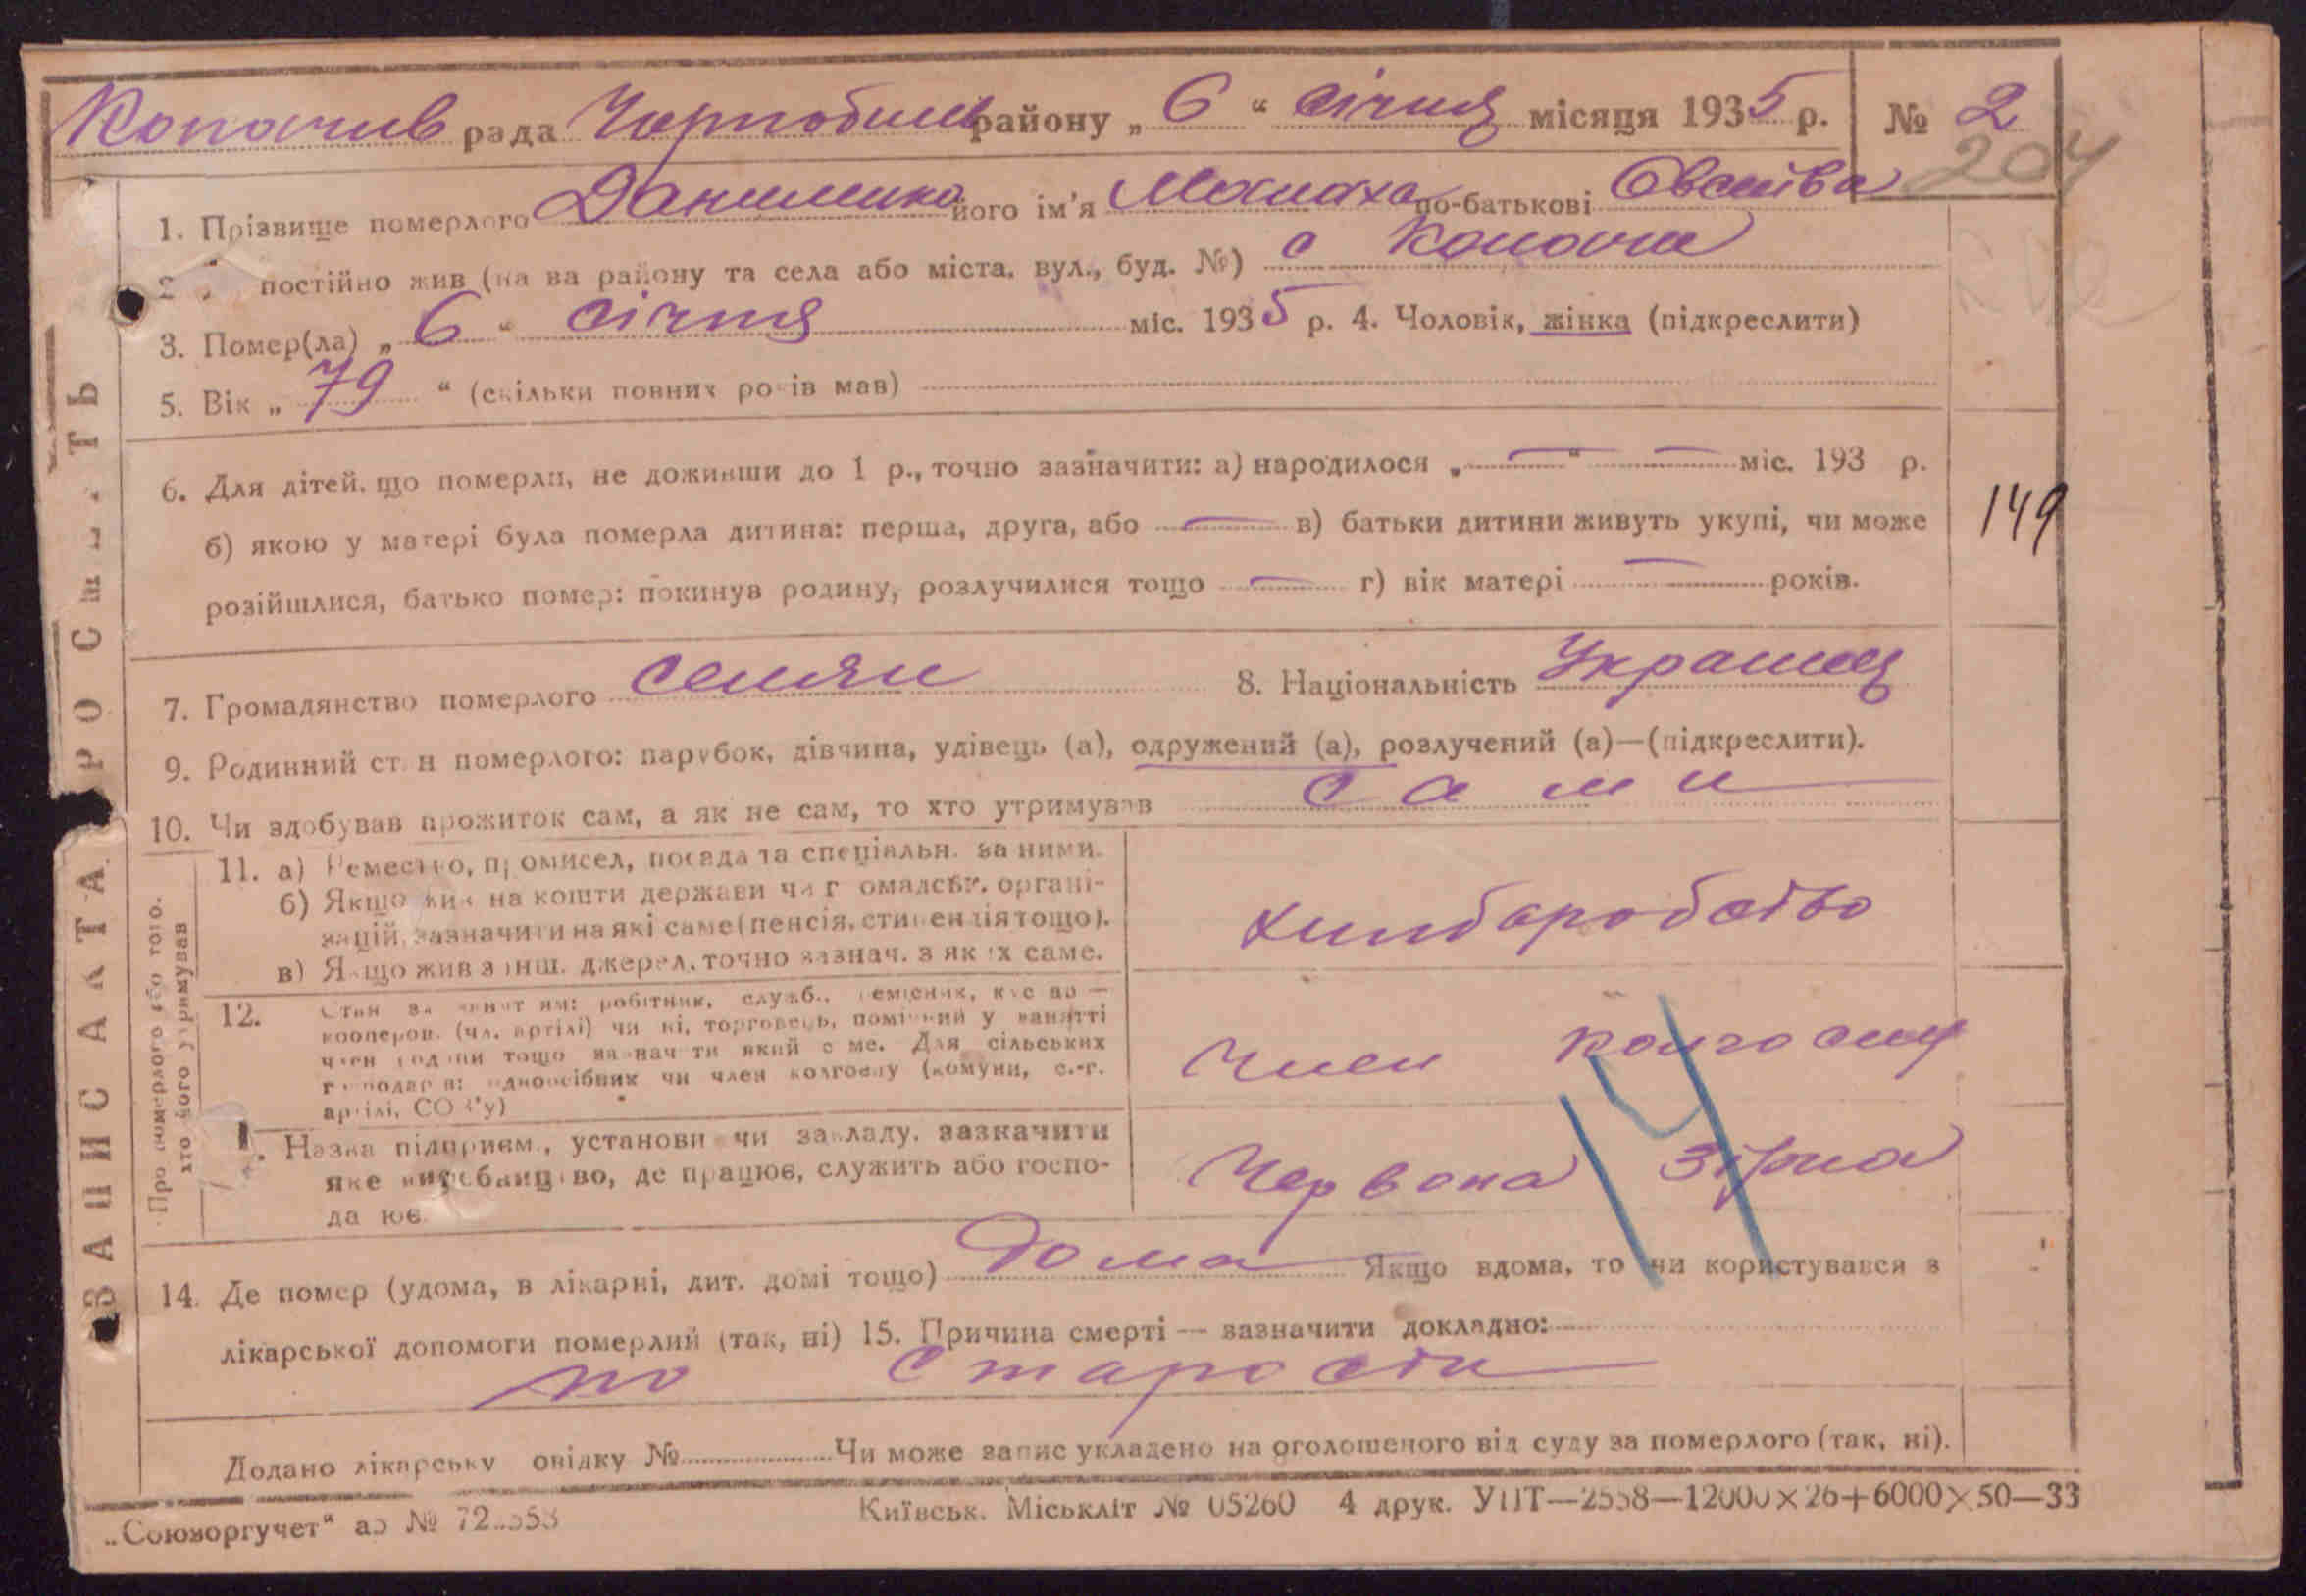 Копачив рада Чорнобилів району „ 6 “ січня місяця 1935 р. № 2
204
1. Прізвище померлого Даниленко його ім'я по-батькові
2 постійно жив (на ва району та села або міста, вул., буд. №) с Копачи
3. Помер(ла) „ 6 “ січня міс. 1935 р. 4. Чоловік, жінка (підкреслити)
5. Вік „ 79 “ (скільки повних років мав)
6. Для дітей, що померли, не доживши до 1 р., точно зазначити: а) народилося „ — “ — міс. 193 р.
б) якою у матері була померла дитина: перша, друга, або — в) батьки дитини живуть укупі, чи може
149
розійшлися, батько помер: покинув родину, розлучилися тощо — г) вік матері — років.
7. Громадянство померлого селян 8. Національність Украинця
9. Родинний стан померлого: парубок, дівчина, удівець (а), одружений (а), розлучений (а)—(підкреслити).
10. Чи здобував прожиток сам, а як не сам, то хто утримував сами
Про померлого або того, хто його утримував
11. а) Ремество, промисел, посада та спеціальн. за ними.
б) Якщо жив на кошти держави чи громадськ. органі-
зацій, зазначити на які саме (пенсія, стипендія тощо).
в) Якщо жив з інш. джерел, точно зазнач. з яких саме.
хлиборобство
12. Стан за занят ям: робітник, служб., ремісник, кустар —
кооперов. (чл. артілі) чи ні, торговець, помічний у занятті
член родини тощо зазначити який саме. Для сільських
господарів: одноосібник чи член колгоспу (комуни, с.-г.
артілі, СОЗ'у)
Член колгоспу
14
Назва підприєм., установи чи закладу, зазначити
яке виробництво, де працює, служить або госпо-
да ює.
Червона Зірка
14. Де помер (удома, в лікарні, дит. домі тощо) Дома Якщо вдома, то чи користувався з
лікарської допомоги померлий (так, ні) 15. Причина смерті — зазначити докладно:
по старости
Додано лікарську овідку № Чи може запис укладено на оголошеного від суду за померлого (так, ні).
„Союзоргучет“ №
Київськ. Міськліт № 05260 4 друк. УПТ—2558—12000×26+6000×50—33
ЗАПИС АКТА РО СМЕРТЬ